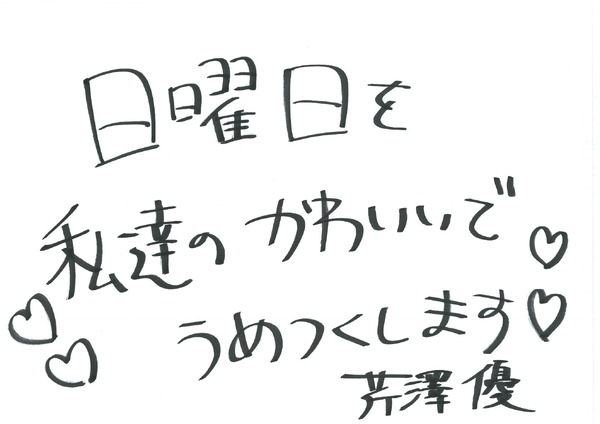 日曜日を
私達のかわいいで
うめつくします
芹澤優